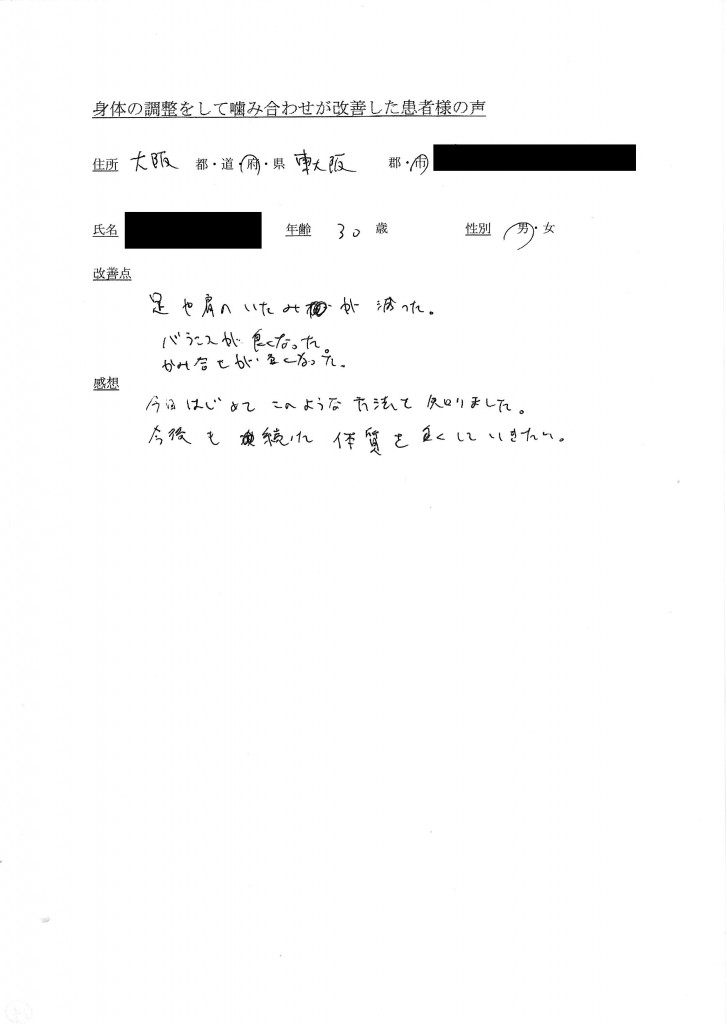 身体の調整をして噛み合わせが改善した患者様の声
住所 大阪 都・道・府・県 東大阪 郡・市
氏名 年齢 30 歳 性別 男・女
改善点
足や肩のいたみが減った。
バランスが良くなった。
かみ合せが良くなった。
感想
今回はじめてこのような方法を知りました。
今後も継続した体質を良くしていきたい。